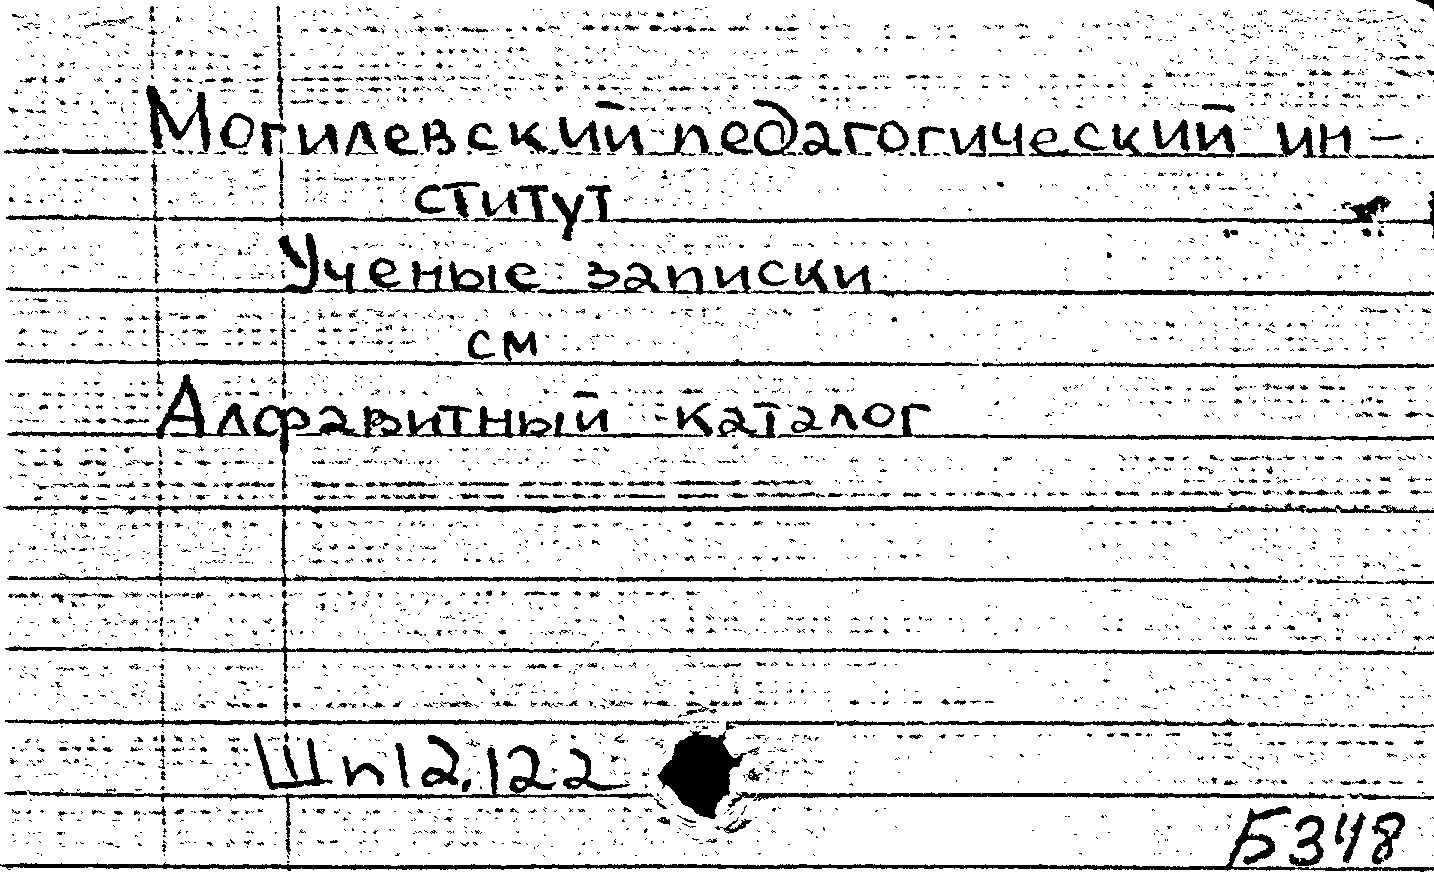 Могилевский педагогический ин-
ститут
Ученые записки
см
Алфавитный каталог
Шп12.122
Б348